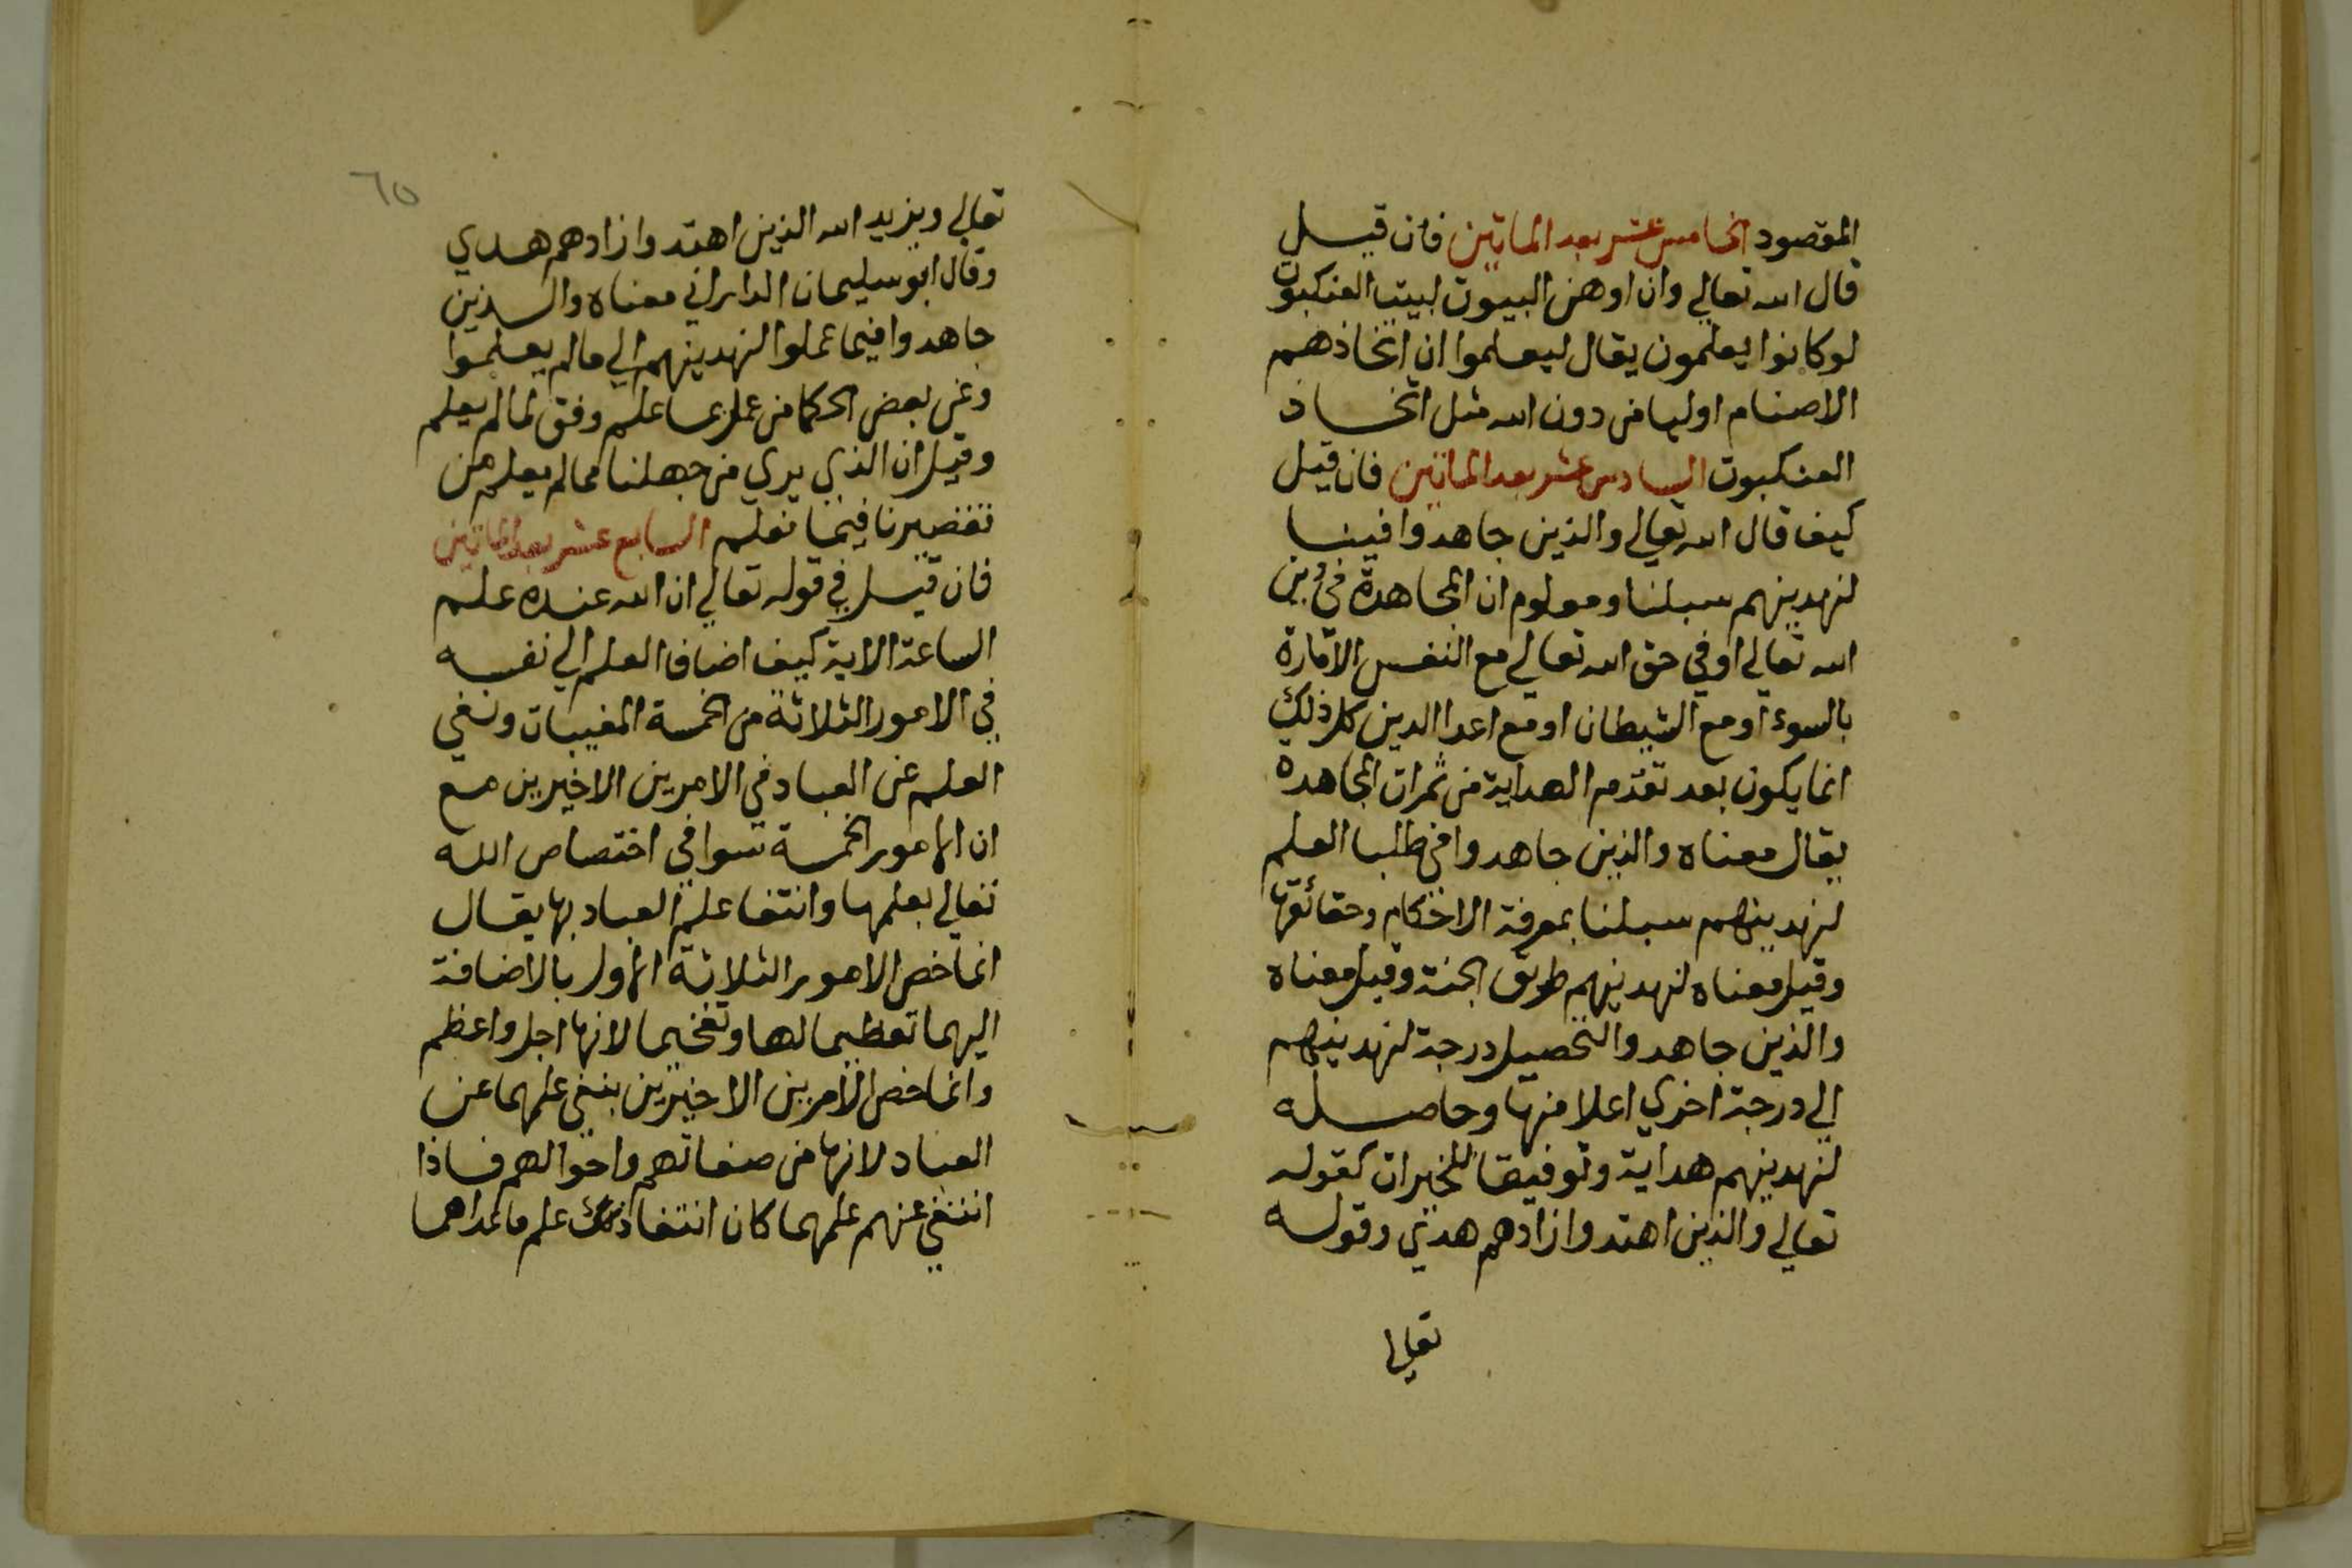 المقصود الخامس عشر بعد الماتين فان قيل
قال الله تعالي وان اوهن البيوت لبيت العنكبوت
لو كانوا يعلمون يقال ليعلموا ان اتخاذهم
الاصنام اوليا من دون الله مثل اتخاذ
العنكبوت السادس عشر بعد الماتين فان قيل
كيف قال الله تعالي والذين جاهدوا فينا
لنهدينهم سبلنا ومعلوم ان المجاهدة في دين
الله تعالي او في حق الله تعالي مع النفس الامارة
بالسوء او مع الشيطان او مع اعدا الدين كل ذلك
انما يكون بعد تقدم الهداية من ثمرات المجاهدة
يقال معناه والذين جاهدوا في طلب العلم
لنهدينهم سبلنا بمعرفة الاحكام وحقائقها
وقيل معناه لنهدينهم طريق الجنة وقيل معناه
والذين جاهدوا لتحصيل درجة لنهدينهم
الي درجة اخري اعلا منها وحاصله
لنهدينهم هداية وتوفيقا للخيرات كقوله
تعالي والذين اهتدوا زادهم هدي وقوله
تعالي
٦٥
تعالي ويزيد الله الذين اهتدوا زادهم هدي
وقال ابو سليمان الداراني معناه والذين
جاهدوا فيما عملوا لنهدينهم الي مالم يعلموا
وعن بعض الحكما من عمل بما علم وفق لمالم يعلم
وقيل ان الذي يري من جهلنا بمالم يعلم من
تقصيرنا فيما نعلم السابع عشر بعد الماتين
فان قيل في قوله تعالي ان الله عنده علم
الساعة الاية كيف اضاف العلم الي نفسه
في الامور الثلاثة من الخمسة المغيبات ونفي
العلم عن العباد في الامرين الاخيرين مع
ان الامور الخمسة سوا في اختصاص الله
تعالي بعلمها وانتفا علم العباد بها يقال
انما خص الامور الثلاثة الاول بالاضافة
اليهما تعظيما لها وتفخيما لانها اجل واعظم
وانما خص الامرين الاخيرين بنفي علمهما عن
العباد لانها من صفاتهم واحوالهم فاذا
انتفي عنهم علمهما كان انتفا ذلك علم ما عداهما